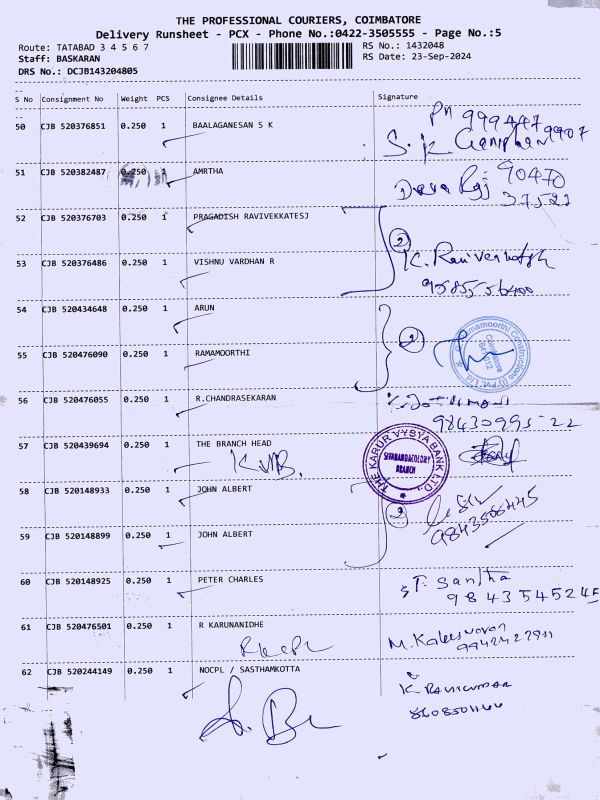 THE PROFESSIONAL COURIERS, COIMBATORE
Delivery Runsheet - PCX - Phone No.:0422-3505555 - Page No.:5
Route: TATABAD 3 4 5 6 7
RS No.: 1432048
Staff: BASKARAN
RS Date: 23-Sep-2024
DRS No.: DCJB143204805
S No Consignment No Weight PCS Consignee Details Signature
50 CJB 520376851 0.250 1 BAALAGANESAN S K
51 CJB 520382487 0.250 1 AMRTHA
90470
37522
52 CJB 520376703 0.250 1 PRAGADISH RAVIVEKKATESJ
2
53 CJB 520376486 0.250 1 VISHNU VARDHAN R
54 CJB 520434648 0.250 1 ARUN
2
55 CJB 520476090 0.250 1 RAMAMOORTHI
56 CJB 520476055 0.250 1 R.CHANDRASEKARAN
98430995-22
57 CJB 520439694 0.250 1 THE BRANCH HEAD
KVB.
THE KARUR VYSYA BANK LTD.
SIVANANDACOLONY
BRANCH
58 CJB 520148933 0.250 1 JOHN ALBERT
59 CJB 520148899 0.250 1 JOHN ALBERT
60 CJB 520148925 0.250 1 PETER CHARLES
T. Santha
9843545245
61 CJB 520476501 0.250 1 R KARUNANIDHE
62 CJB 520244149 0.250 1 NOCPL / SASTHAMKOTTA
K RAVIKUMAR